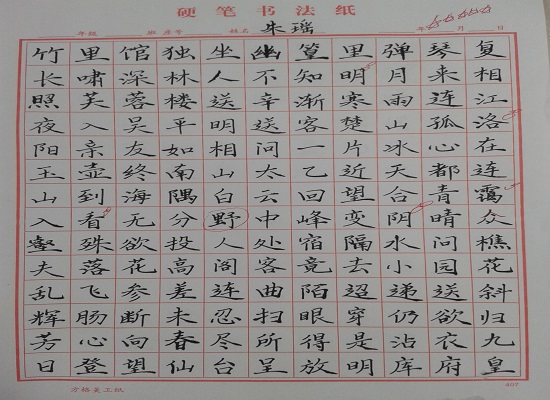 硬笔书法纸
年级 班 座号 姓名 朱瑶 年 月 日
竹里馆独坐幽篁里弹琴复
长啸深林人不知明月来相
照芙蓉楼送辛渐寒雨连江
夜入吴平明送客楚山孤洛
阳亲友如相问一片冰心在
玉壶终南山太乙近天都连
山到海隅白云回望合青霭
入看无分野中峰变阴晴众
壑殊欲投人处宿隔水问樵
夫落花高阁客竟去小园花
乱飞参差连曲陌迢递送斜
辉肠断未忍扫眼穿仍欲归
芳心向春尽所得是沾衣九
日登望仙台呈放明库府皇
方格美工纸 407